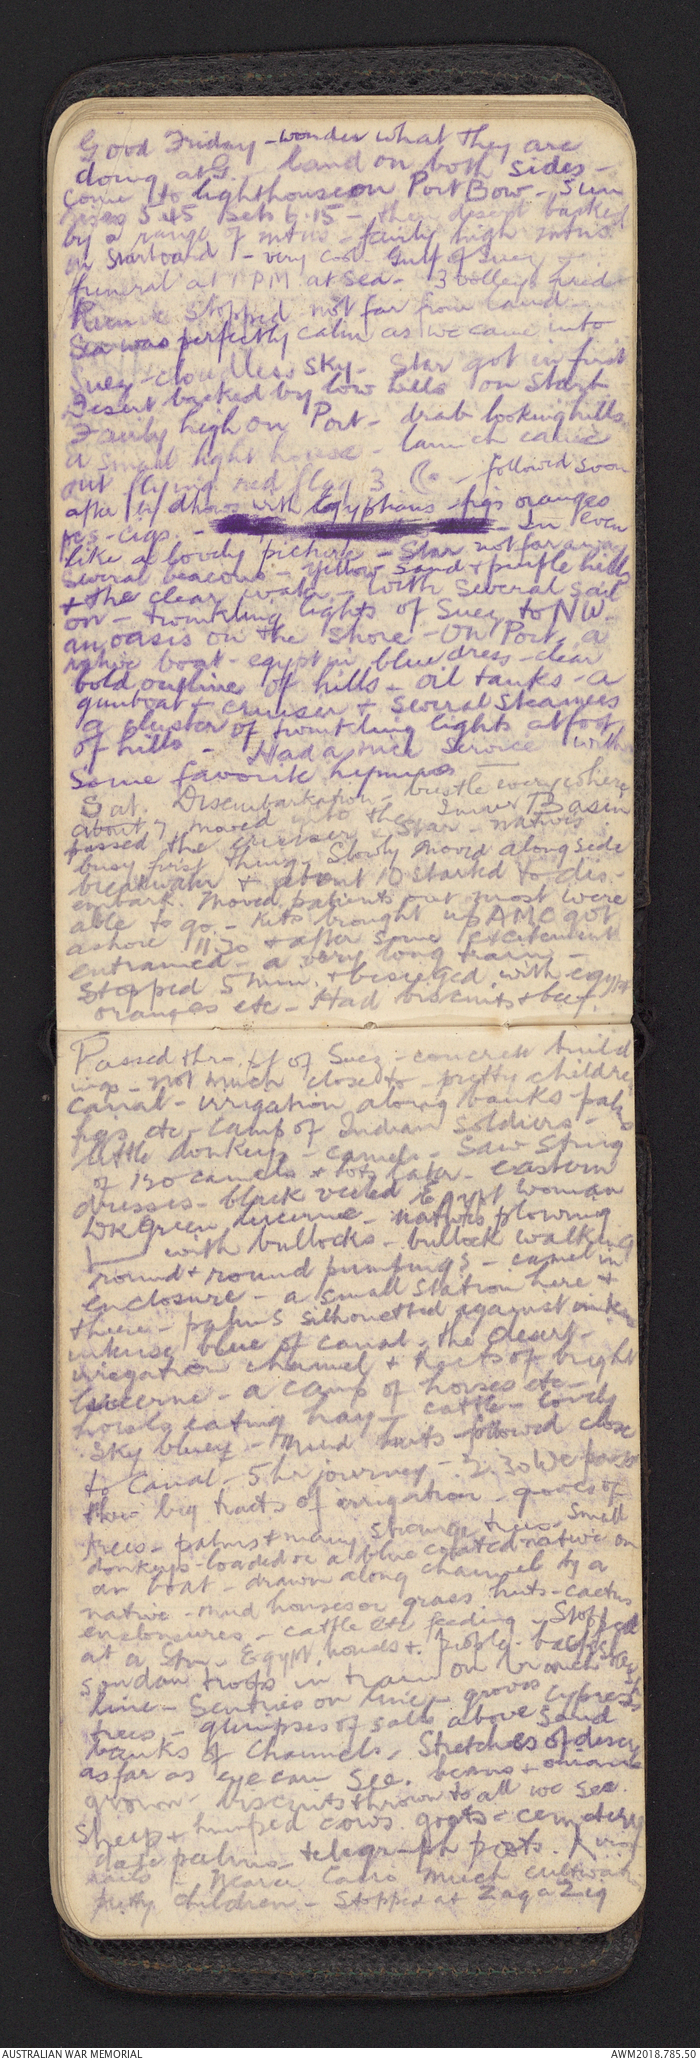 Good Friday - wonder what they are
doing at G. - land on both sides -
come to lighthouse on Port Bow - Sun
rises 5.45 sets 6.15 - then desert backed
by a range of mtns - fairly high mtns
on Starboard - very cool Gulf of Suez -
funeral at 1 PM at Sea - 3 volleys fired
Stopped not far from land
Sea was perfectly calm as we came into
Suez - cloudless sky. Star got in first
Desert backed by low hills on Starb
Fairly high on Port - drab looking hills
a small light house - launch came
out flying red flag 3 - followed soon
after by dhows with Egyptians - figs oranges
cigs. - - In even
like a lovely picture - Star not far away
Several beacons - yellow sand & purple hills
& the clear water - with several sail
on - twinkling lights of Suez to NW.
an oasis on the shore - On Port, a
native boat - egypt in blue dress - clear
bold outline of hills - oil tanks - a
gunboat & cruiser & several steamers
a cluster of twinkling lights at foot
of hills - Had a nice service with
some favorite hymns
Sat. Disembarkation - bustle everywhere
about 7 moved into the Inner Basin
passed the cruiser & Star - natives
busy first thing. Slowly moved alongside
breakwater & about 10 started to dis-
embark. Moved patients out most were
able to go. - Kits brought up AMC got
ashore 11.30 & after some excitement
entrained - a very long train -
Stopped 5 min. & besieged with egypt
oranges etc - Had biscuits & beef.
Passed thro' of Suez - concrete build
ings - not much close to - pretty children
canal - irrigation along banks - palms
figs etc - camp of Indian Soldiers -
little donkeys - camels - Saw string
of 150 camels & lots later - eastern
dresses - black veiled Egypt woman
Dk green lucerne - natives plowing
with bullocks - bullock walking
round & round pumping - camel in
enclosure - a small station here &
there - palms silhouetted against
intense blue of canal - the desert -
irrigation channel & tracts of bright
lucerne - a camp of horses etc -
horses eating hay - cattle - lovely
sky bluey - Mud huts - followed close
to Canal - 5 hr journey - 2.30 We pass
thro' big tracts of irrigation - groves of
trees - palms & many strange trees - small
donkeys - loaded or a blue coated native on
an boat - drawn along channel by a
native - mud houses or grass huts - cactus
enclosures - cattle etc feeding - Stopped
at a Stn - Egypt. & people -
soudan troops in train on branch
line - Sentries on line - groves cypress
trees - glimpses of sails above sand
banks of channels - Stretches of desert
as far as eye can see. beans & onions
grown - biscuits thrown to all we see.
Sheep & humped cows. goats - cemetery
date palms - telegraph posts.
rails - Near Cairo much cultivatn
pretty children - Stopped at ZagaZig
AUSTRALIAN WAR MEMORIAL
AWM2018.785.50